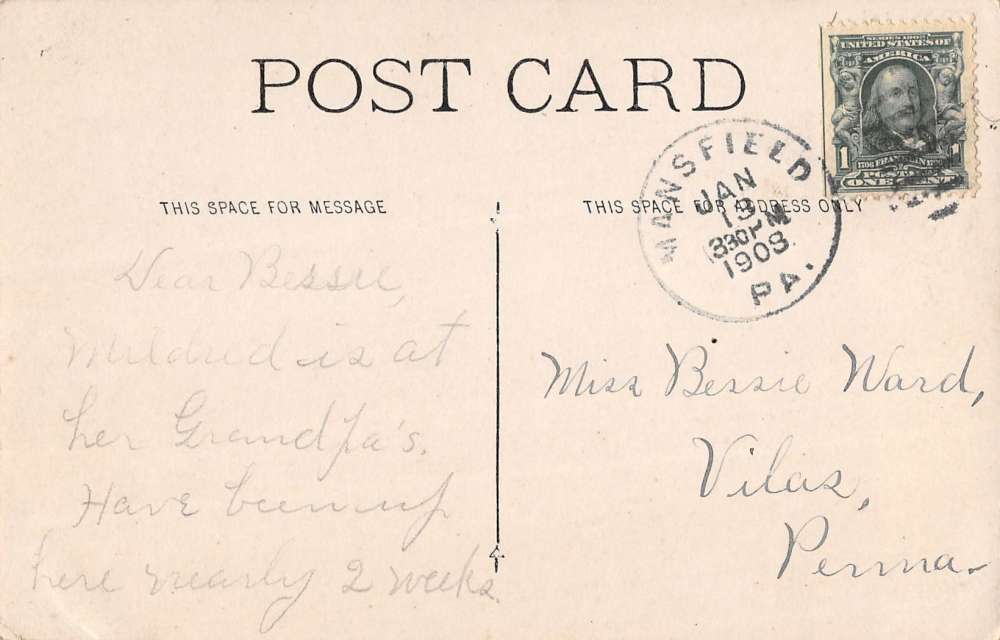 POST CARD
SERIES 1902
UNITED STATES OF
AMERICA
1 FRANKLIN 1
POSTAGE
ONE CENT
MANSFIELD
JAN
13
330PM
1908
PA.
THIS SPACE FOR MESSAGE
THIS SPACE FOR ADDRESS ONLY
Dear Bessie,
Mildred is at
her Grandpa's.
Have been up
here nearly 2 weeks.
Miss Bessie Ward,
Vilas,
Penna.